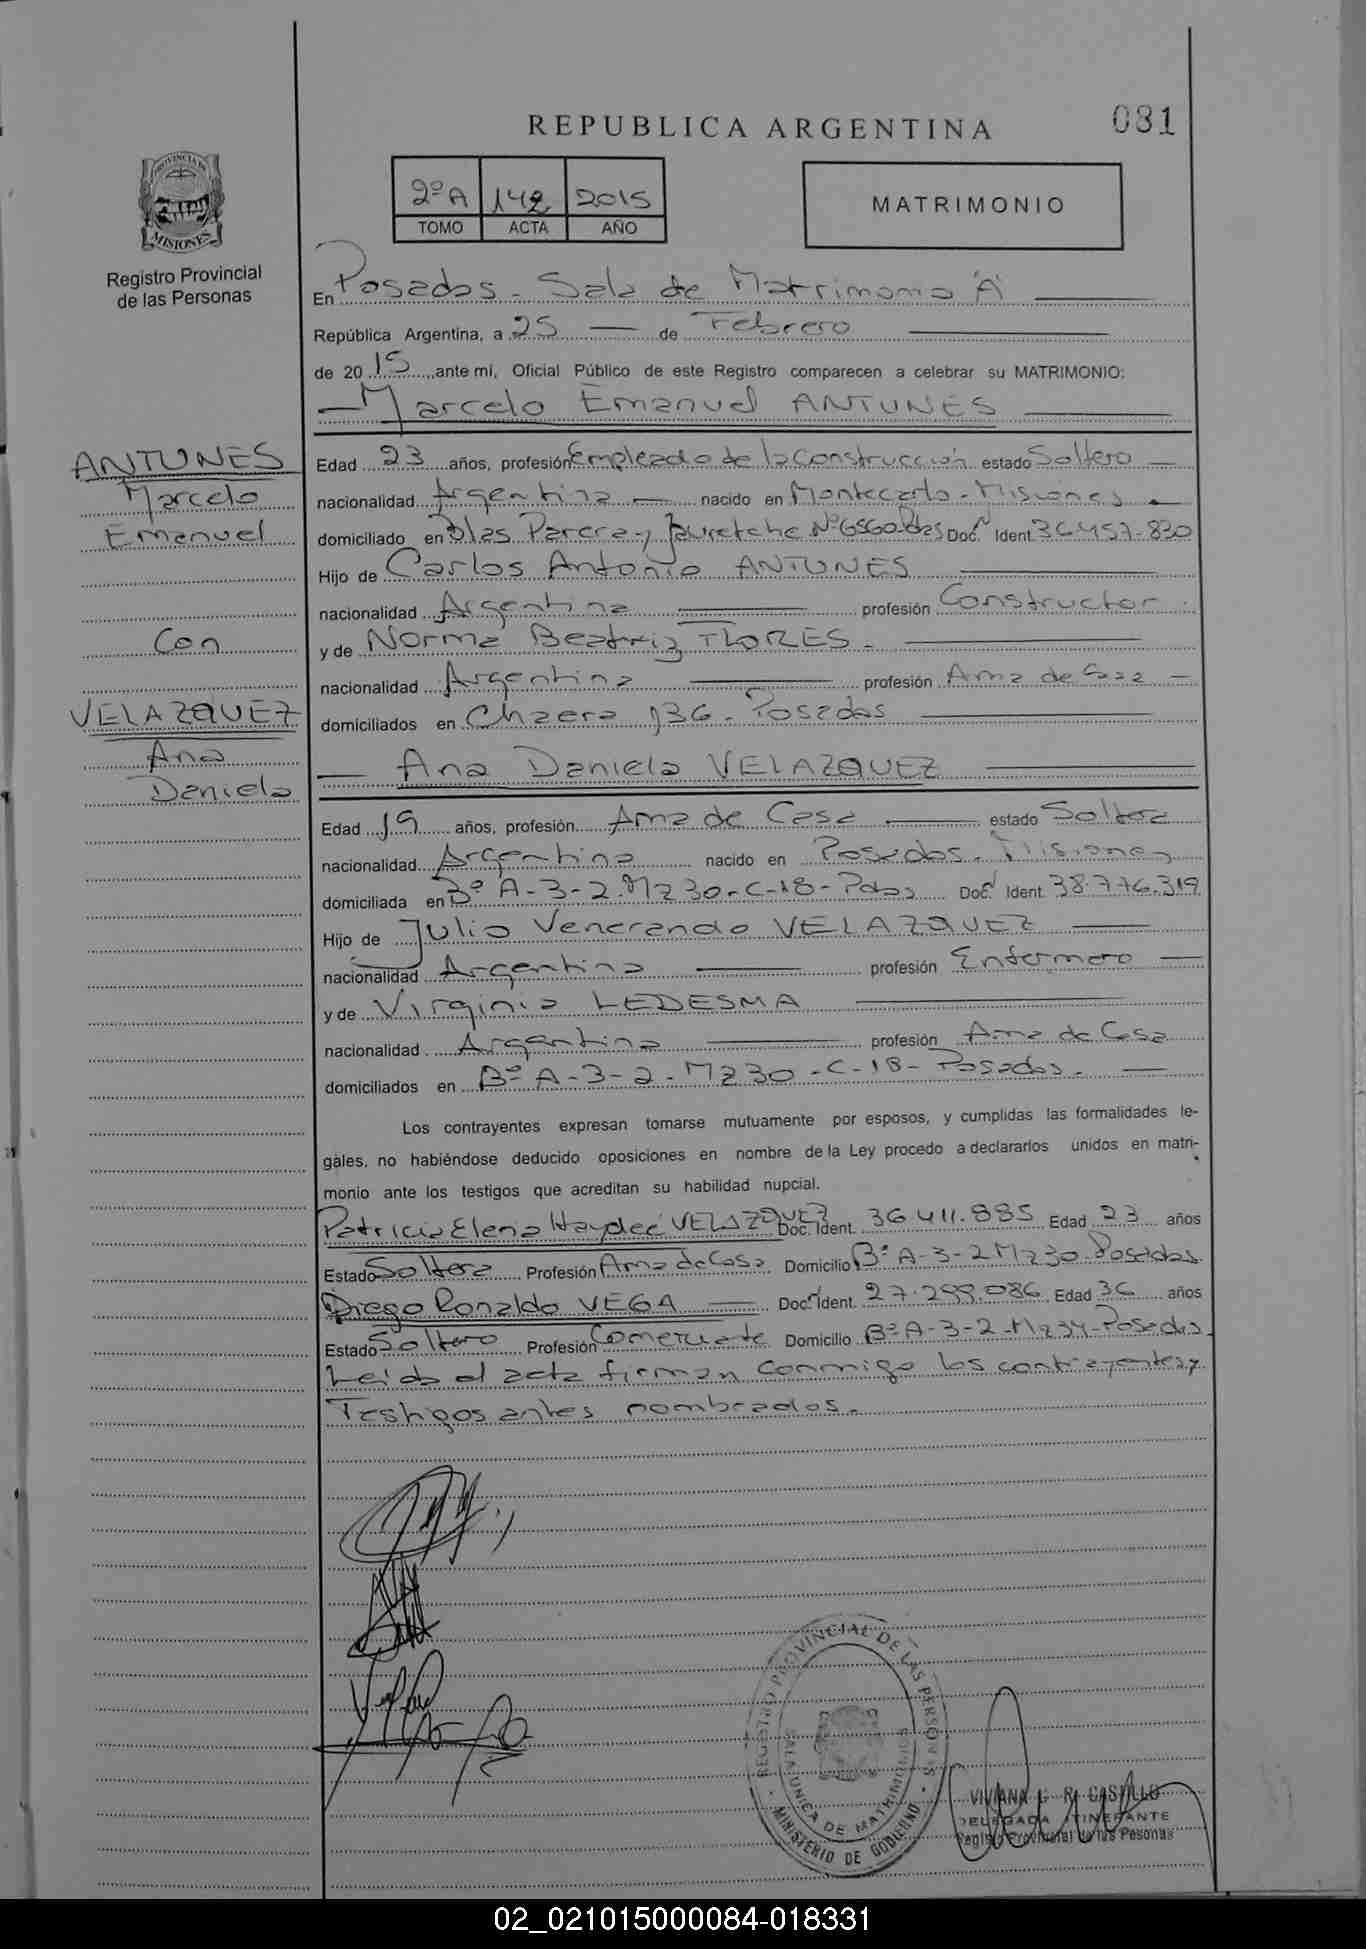 081
REPUBLICA ARGENTINA
PROVINCIA DE MISIONES
Registro Provincial
de las Personas
2º A 142 2015
TOMO ACTA AÑO
MATRIMONIO
En Posadas - Sala de Matrimonio "A"
República Argentina, a 25 de Febrero
de 2015, ante mí, Oficial Público de este Registro comparecen a celebrar su MATRIMONIO:
Marcelo Emanuel ANTUNES
ANTUNES
Marcelo
Emanuel
Con
VELAZQUEZ
Ana
Daniela
Edad 23 años, profesión Empleado de la Construcción estado Soltero
nacionalidad Argentina nacido en Montecarlo - Misiones
domiciliado en Blas Parera y Jauretche Nº 6560 Pdas Doc. Ident. 36.457.830
Hijo de Carlos Antonio ANTUNES
nacionalidad Argentina profesión Constructor
y de Norma Beatriz FLORES.
nacionalidad Argentina profesión Ama de Casa
domiciliados en Chacra 136 - Posadas
Ana Daniela VELAZQUEZ
Edad 19 años, profesión Ama de Casa estado Soltera
nacionalidad Argentina nacido en Posadas - Misiones
domiciliada en Bº A-3-2-Mz 30-C-18-Pdas Doc. Ident. 38.776.319
Hijo de Julio Venerando VELAZQUEZ
nacionalidad Argentina profesión Enfermero
y de Virginia LEDESMA
nacionalidad Argentina profesión Ama de Casa
domiciliados en Bº A-3-2-Mz 30-C-18-Posadas.
Los contrayentes expresan tomarse mutuamente por esposos, y cumplidas las formalidades le-
gales, no habiéndose deducido oposiciones en nombre de la Ley procedo a declararlos unidos en matri-
monio ante los testigos que acreditan su habilidad nupcial.
Patricia Elena Haydeé VELAZQUEZ Doc. Ident. 36.411.885 Edad 23 años
Estado Soltera Profesión Ama de Casa Domicilio Bº A-3-2 Mz 30-Posadas
Diego Ronaldo VEGA Doc. Ident. 27.299.086 Edad 36 años
Estado Soltero Profesión Comerciante Domicilio Bº A-3-2-Mz 34-Posadas
Leida el acta firman conmigo los contrayentes y
Testigos antes nombrados.
REGISTRO PROVINCIAL DE LAS PERSONAS
SALA UNICA DE MATRIMONIOS
MINISTERIO DE GOBIERNO
VIVIANA G. R. CASTILLO
DELEGADA ITINERANTE
Registro Provincial de las Pesonas
02_021015000084-018331